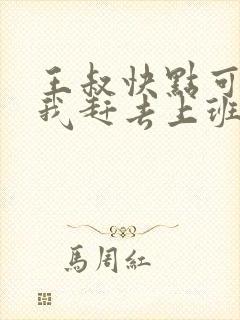 王叔快點可
我赶去上班
馬周紅